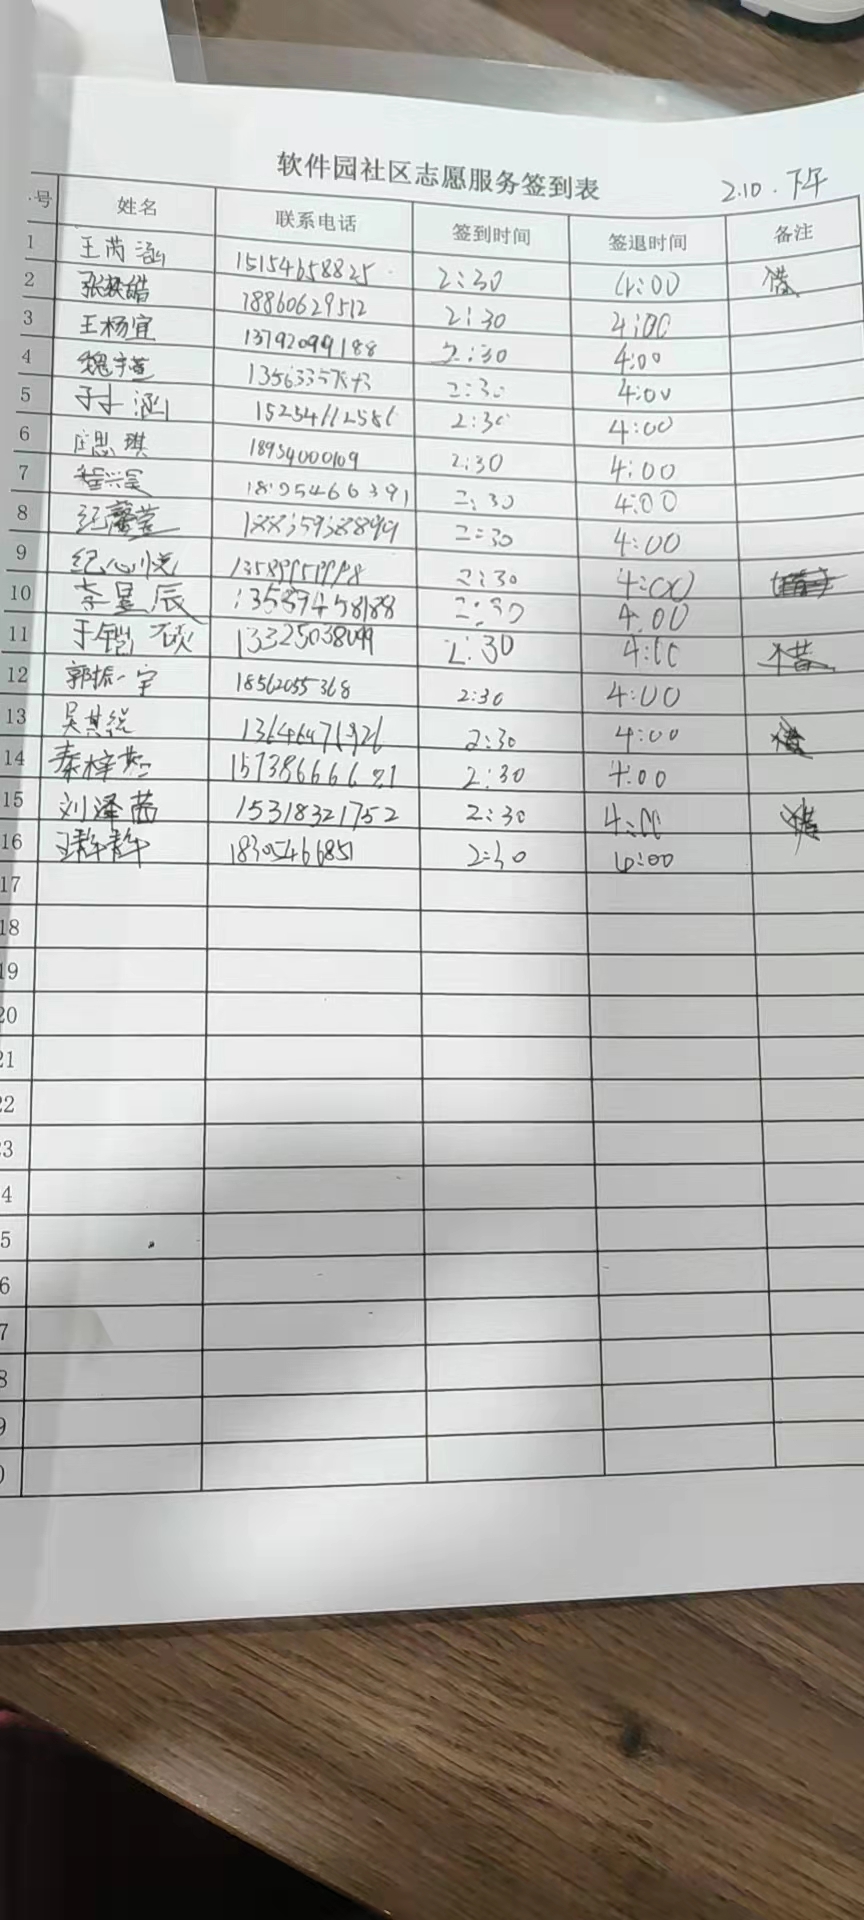 软件园社区志愿服务签到表 2.10.下午
号 姓名 联系电话 签到时间 签退时间 备注
1 王芮涵 15154658825 2:30 4:00 借
2 张轶皓 18860629512 2:30 4:00
3 王杨宜 13792099188 2:30 4:00
4 魏宇萱 2:30 4:00
5 2:30 4:00
6 庄思琪 18954000109 2:30 4:00
7 2:30 4:00
8 纪馨萱 2:30 4:00
9 纪心悦 2:30 4:00
10 李星辰 13589458188 2:30 4:00
11 于铠硕 13325038099 2:30 4:00 借
12 郭振宇 18562055368 2:30 4:00
13 吴其 2:30 4:00
14 秦梓 2:30 4:00
15 刘泽茜 15318321752 2:30 4:00
16 王静静 18305466851 2:30 4:00
17
18
19
20
21
22
23
4
5
6
7
8
9
0